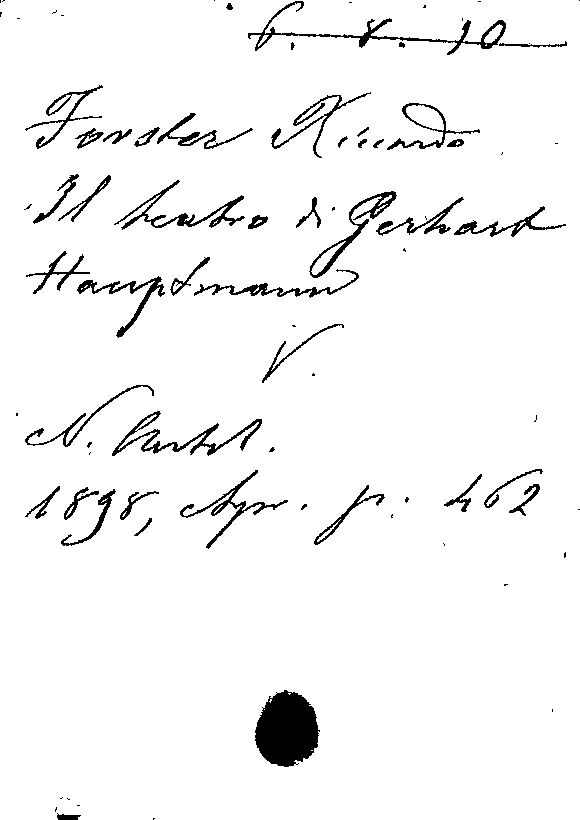 6. 8. 10
Forster Riccardo
Il teatro di Gerhart
Hauptmann
V.
N. Antol.
1898, Apr. p. 462